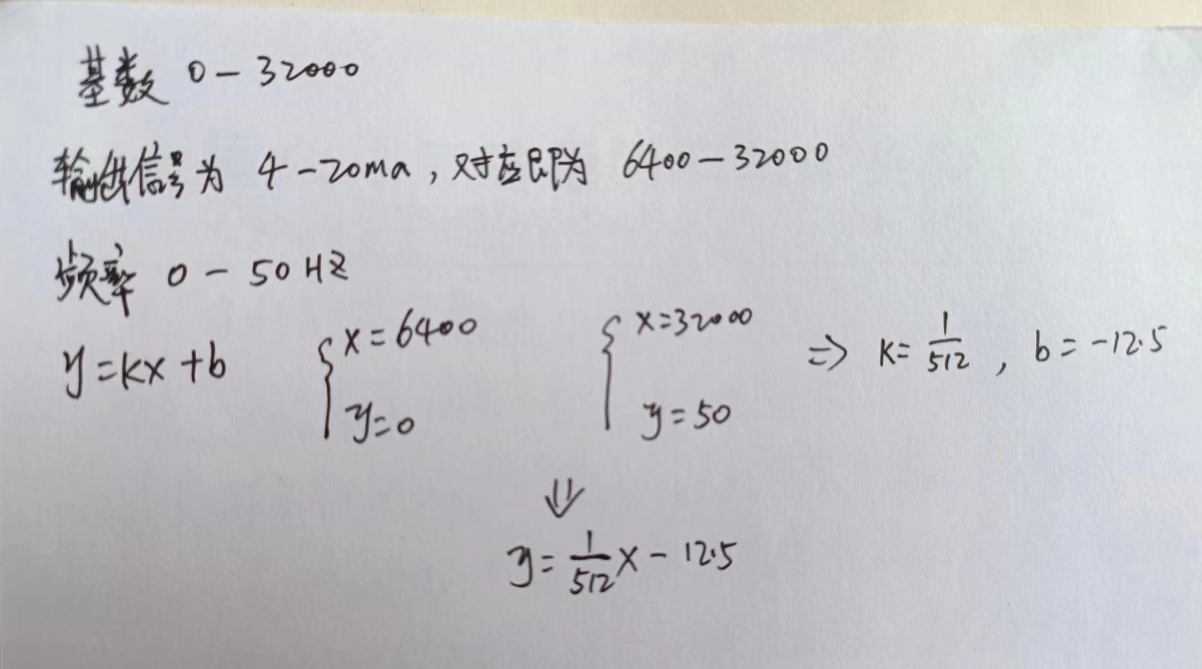 基数 0-32000
输出信号为 4-20ma，对应即为 6400-32000
频率 0-50HZ
y=kx+b { x=6400 y=0 { x=32000 y=50 => k=1/512, b=-12.5
⇓
y=1/512x-12.5